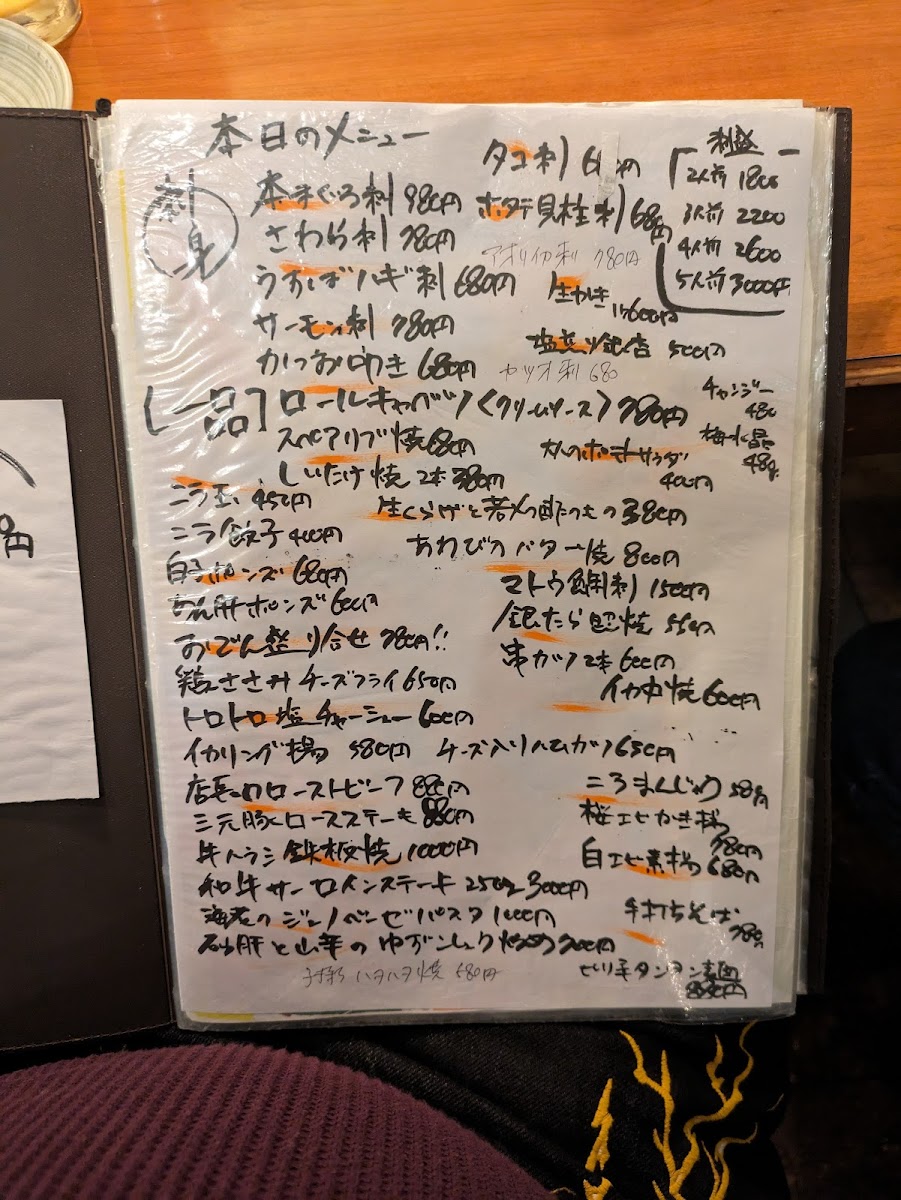 本日のメニュー
刺身
本まぐろ刺 980円
さわら刺 780円
うすばハギ刺 680円
サーモン刺 780円
かつお叩き 680円
タコ刺
ホタテ貝柱刺 680円
アオリイカ刺 780円
生かき
塩煎り銀杏 500円
カツオ刺 680
刺盛
2人前 1800
3人前 2200
4人前 2600
5人前 3000円
[一品] ロールキャベツ〈クリームソース〉 780円
チャンジャー 480
梅水晶
スペアリブ焼 680円
しいたけ焼 2本 380円
ポテトサラダ 400円
ニラ玉 450円
生くらげと若メの酢のもの 380円
ニラ餃子 400円
あわびのバター焼 800円
白子ポンズ 680円
マトウ鯛刺 1500円
あん肝ポンズ 600円
銀たら照焼 550円
おでん盛り合せ 780円!!
串カツ 2本 600円
鶏ささみチーズフライ 650円
イカ肉焼 600円
トロトロ塩チャーシュー 600円
イカリング揚 580円
チーズ入りハムカツ 650円
店長のローストビーフ 880円
ころまんじゅう
三元豚ロースステーキ 880円
桜エビかき揚 780円
牛ハラミ鉄板焼 1000円
白エビ素揚 680円
和牛サーロインステーキ 250g 3000円
海老のジェノベーゼパスタ 1000円
手打ちそば 780円
砂肝と山芋のゆずコショウ炒め 700円
子持ハタハタ焼 680円
ピリ辛タンタン麺
円